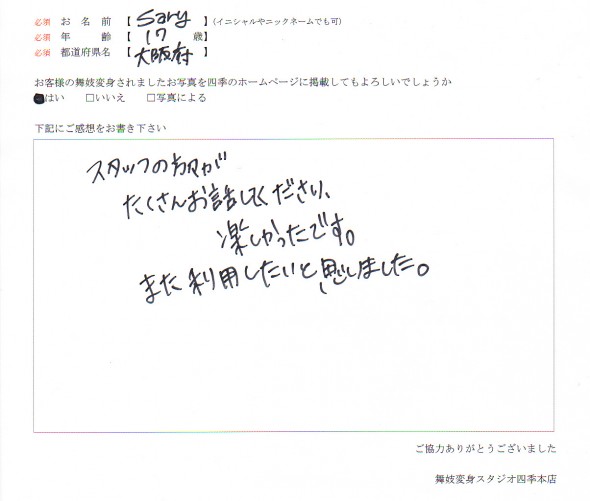 必須 お 名 前 【 Sary 】 (イニシャルやニックネームでも可)
必須 年 齢 【 17 歳】
必須 都道府県名 【 大阪府 】
お客様の舞妓変身されましたお写真を四季のホームページに掲載してもよろしいでしょうか
■はい □いいえ □写真による
下記にご感想をお書き下さい
スタッフの方々が
たくさんお話してくださり、
楽しかったです。
また利用したいと思いしました。
ご協力ありがとうございました
舞妓変身スタジオ四季本店